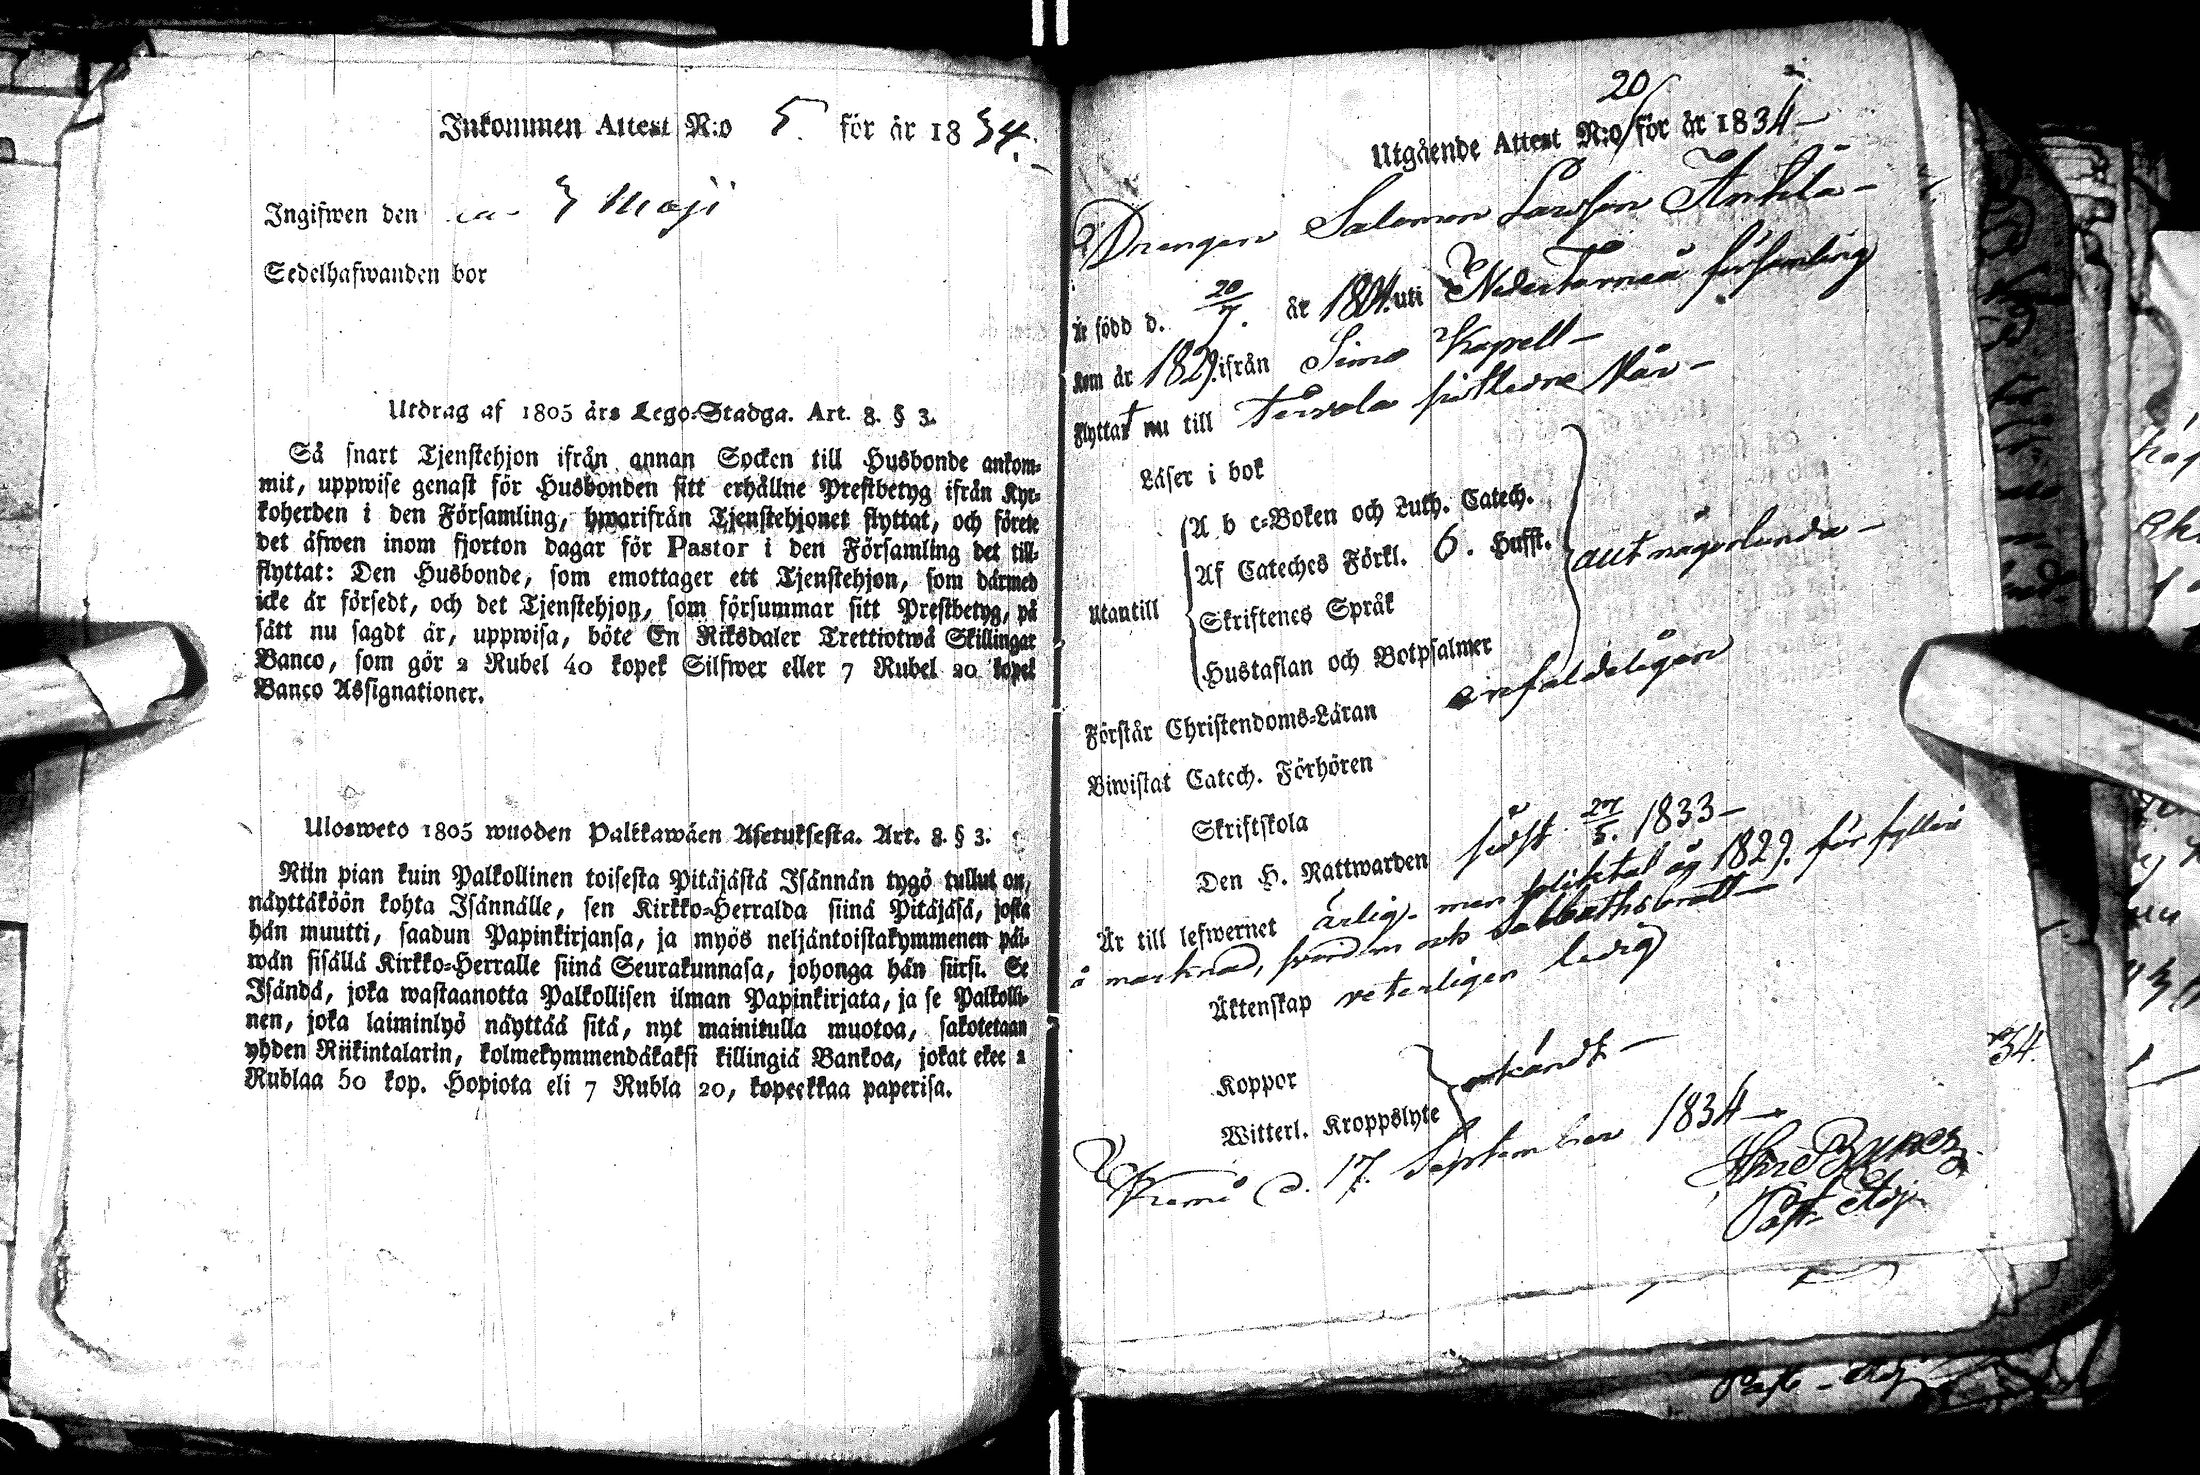 Inkommen Attest N:o 5. för år 1834.
Ingifwen den 3 Maji
Sedelhafwanden bor
Utdrag af 1805 års Lego-Stadga. Art. 8. § 3.
Så snart Tjenstehjon ifrån annan Socken till Husbonde ankom-
mit, uppwise genast för Husbonden sitt erhållne Prestbetyg ifrån Kyr-
koherden i den Församling, hwarifrån Tjenstehjonet flyttat, och förete
det äfwen inom fjorton dagar för Pastor i den Församling det till-
flyttat: Den Husbonde, som emottager ett Tjenstehjon, som därmed
icke är försedt, och det Tjenstehjon, som försummar sitt Prestbetyg, på
sätt nu sagdt är, uppwisa, böte En Riksdaler Trettiotwå Skillingar
Banco, som gör 2 Rubel 40 kopek Silfwer eller 7 Rubel 20 kopek
Banco Assignationer.
Ulosweto 1805 wuoden Palkkawäen Asetuksesta. Art. 8. § 3.
Niin pian kuin Palkollinen toisesta Pitäjästä Isännän tygö tullut on,
näyttäköön kohta Isännälle, sen Kirkko-Herralda siinä Pitäjäsä, josta
hän muutti, saadun Papinkirjansa, ja myös neljäntoistakymmenen päi-
wän sisällä Kirkko-Herralle siinä Seurakunnasa, johonga hän siirsi. Se
Isändä, joka wastaanotta Palkollisen ilman Papinkirjata, ja se Palkolli-
nen, joka laiminlyö näyttää sitä, nyt mainitulla muotoa, sakotetaan
yhden Riikintalarin, kolmekymmendäkaksi killingiä Bankoa, jokat ekee 2
Rublaa 50 kop. Hopiota eli 7 Rubla 20, kopeekkaa paperisa.
20
Utgående Attest N:o för år 1834
Drengen Salomon Larsson
Är född d. 20/7. år 1804 uti Nedertorneå församling
Kom år 1829. ifrån Simo Kapell
Flyttat nu till Tervola
Läser i bok
A b c-Boken och Luth. Catech.
Af Cateches Förkl. 6. Hufst.
allt någorlunda
Utantill
Skriftenes Språk
Hustaflan och Botpsalmer
Förstår Christendoms-Läran enfaldeligen
Biwistat Catech. Förhören
Skriftskola
Den H. Nattwarden sidst 27/5. 1833
Är till lefwernet ärlig, men 1829. för fylleri
å marknad, svordom och Sabbathsbrott
Äktenskap veterligen ledig
Koppor
okändt
Witterl. Kroppslyte
Kemi d. 17. September 1834
Past. Adj.
34.
Past. Adj.